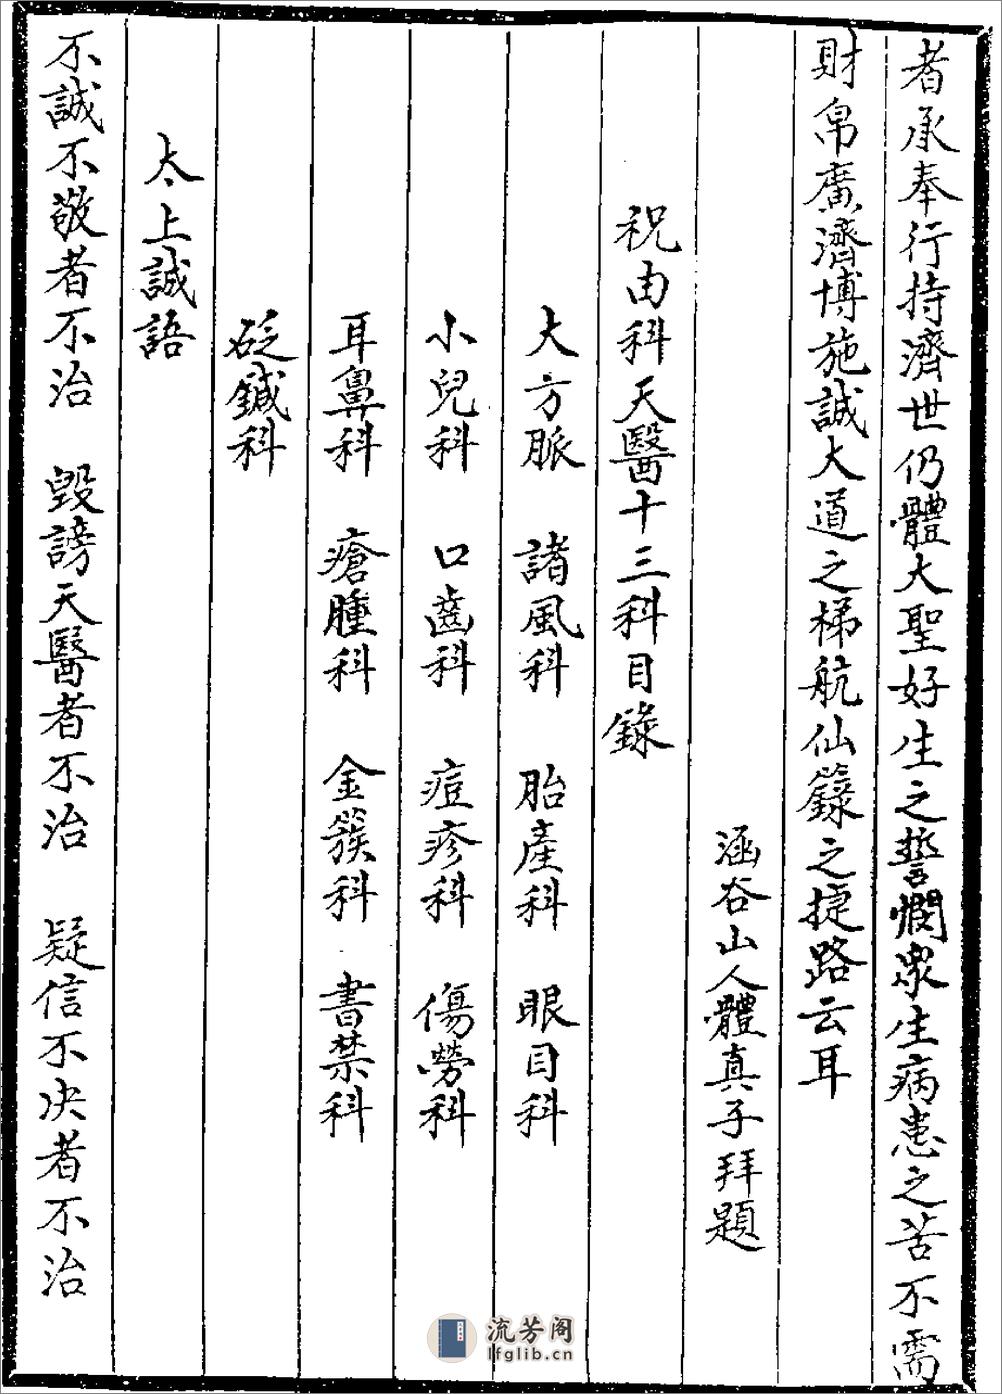 者承奉行持濟世仍體大聖好生之誓憫衆生病患之苦不需
財帛廣濟博施誠大道之梯航仙籙之捷路云耳
涵谷山人體真子拜題
祝由科天醫十三科目錄
大方脈 諸風科 胎產科 眼目科
小兒科 口齒科 痘疹科 傷勞科
耳鼻科 瘡腫科 金簇科 書禁科
砭鍼科
太上誠語
不誠不敬者不治 毀謗天醫者不治 疑信不决者不治
流芳阁
lfglib.cn